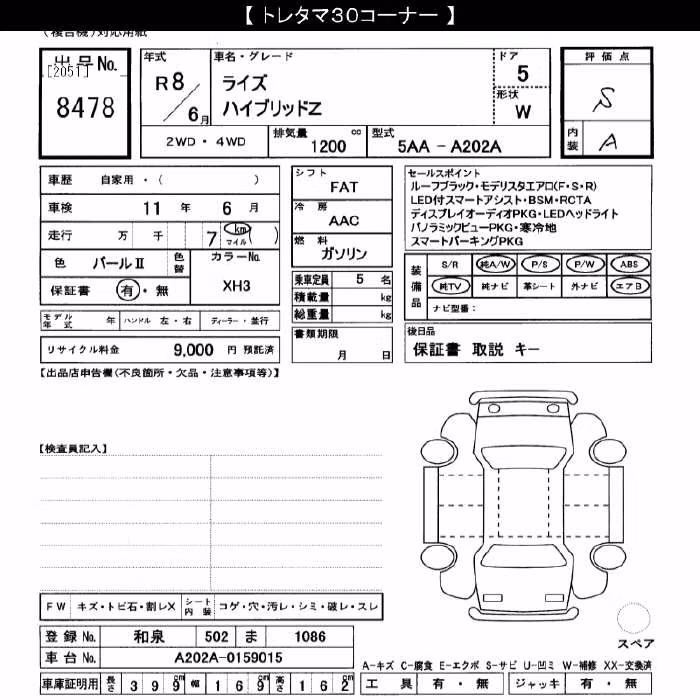 【 トレタマ30コーナー 】
(複合機)対応用紙
出品No.
[2051]
8478
年式
R 8 / 6 月
車名・グレード
ライズ
ハイブリッドZ
ドア
5
形状
W
評価点
S
内装 A
2WD・4WD
排気量 1200 cc
型式 5AA - A202A
車歴 自家用・( )
車検 11 年 6 月
走行 万 千 7 km マイル ( )
色 パールⅡ 色替
カラーNo.
XH3
保証書 有・無
モデル年式 年 ハンドル 左・右 ディーラー・並行
リサイクル料金 9,000 円 預託済
シフト
FAT
冷房
AAC
燃料
ガソリン
乗車定員 5 名
積載量 kg
総重量 kg
書類期限
月 日
セールスポイント
ルーフブラック・モデリスタエアロ(F・S・R)
LED付スマートアシスト・BSM・RCTA
ディスプレイオーディオPKG・LEDヘッドライト
パノラミックビューPKG・寒冷地
スマートパーキングPKG
装備品
S/R 純A/W P/S P/W ABS
純TV 純ナビ 革シート 外ナビ エアB
ナビ型番:
後日品
保証書 取説 キー
【出品店申告欄(不良箇所・欠品・注意事項等)】
【検査員記入】
FW キズ・トビ石・割レX シート内装 コゲ・穴・汚レ・シミ・破レ・スレ
登録No. 和泉 502 ま 1086
車台No. A202A-0159015
車庫証明用 長さ 399cm 幅 169cm 高さ 162cm
スペア
A-キズ C-腐食 E-エクボ S-サビ U-凹ミ W-補修 XX-交換済
工具 有・無 ジャッキ 有・無